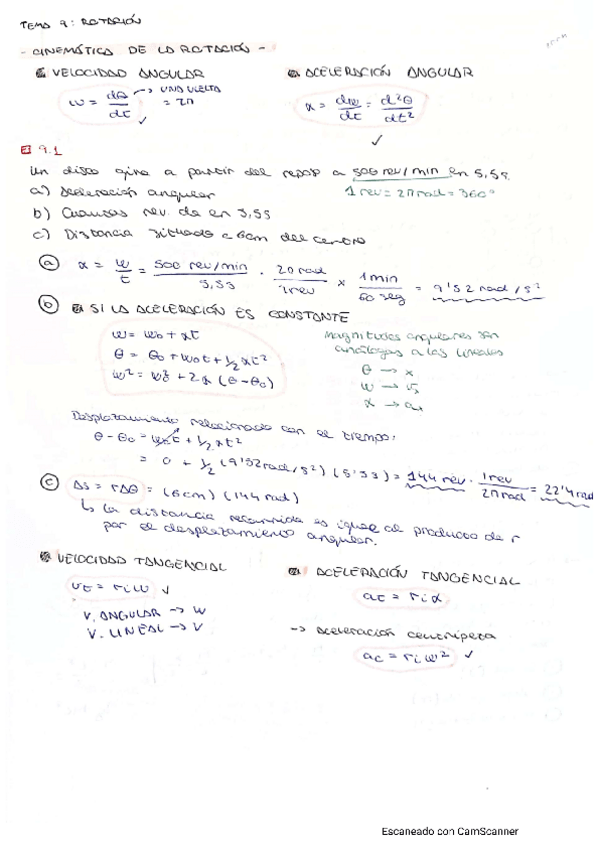 TEMA 9: ROTACIÓN
- CINEMÁTICA DE LA ROTACIÓN -
VELOCIDAD ANGULAR
ω = dθ/dt → UNA VUELTA = 2π
ACELERACIÓN ANGULAR
α = dω/dt = d²θ/dt²
9.1
Un disco gira a partir del reposo a 500 rev/min en 5,5s.
1 rev = 2π rad = 360°
a) Aceleración angular
b) Cuantas rev. da en 5,5s
c) Distancia situado a 6cm del centro
a) α = ω/t = 500 rev/min / 5,5s · 2π rad / 1rev × 1min / 60 seg = 9'52 rad/s²
b) SI LA ACELERACIÓN ES CONSTANTE
ω = ω₀ + αt
θ = θ₀ + ω₀t + 1/2 αt²
ω² = ω₀² + 2α (θ-θ₀)
Magnitudes angulares son
análogas a las lineales
θ → x
ω → v
α → a
Desplazamiento relacionado con el tiempo:
θ-θ₀ = ω₀t + 1/2 αt²
= 0 + 1/2 (9'52rad/s²) (5'5s) = 144 rev · 1rev / 2π rad = 22'9 rad
c) Δs = rΔθ = (6cm) (144 rad)
↳ La distancia recorrida es igual al producto de r
por el desplazamiento angular.
VELOCIDAD TANGENCIAL
vt = riω
V. ANGULAR → ω
V. LINEAL → V
ACELERACIÓN TANGENCIAL
at = riα
→ Aceleración centrípeta
ac = riω²
Escaneado con CamScanner